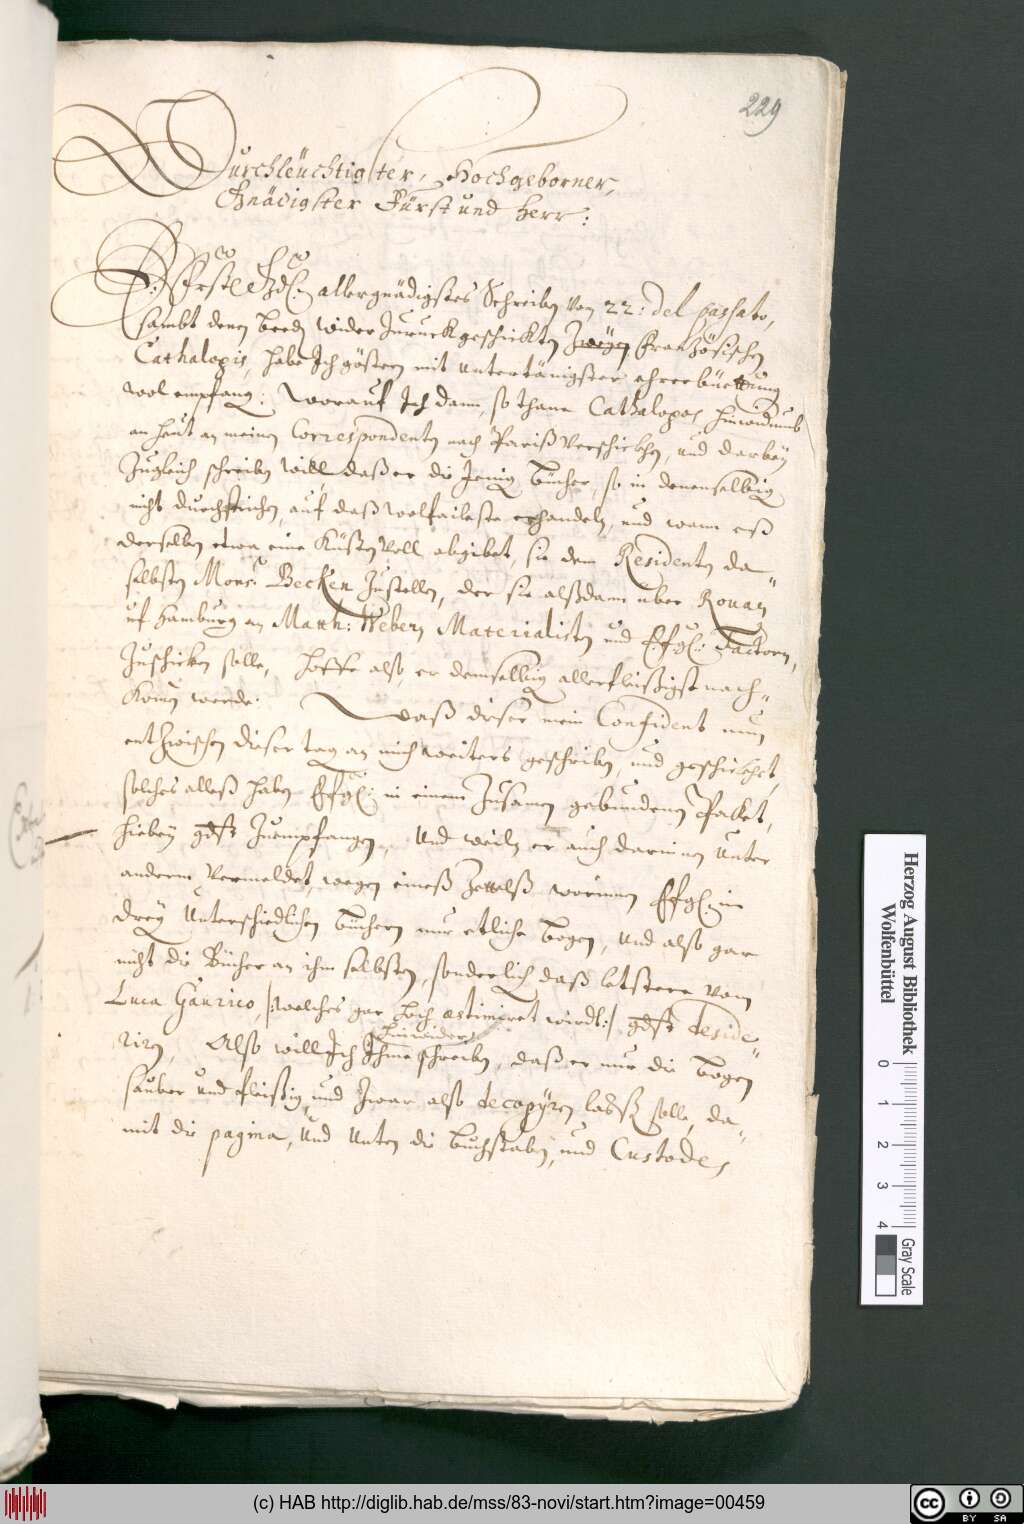 229
Durchleüchtigster, Hochgeborner,
Gnädigster Fürst und Herr:
E: Frstl Gd: allergnädigstes Schreiben von 22: del passato,
sambt denen beeden wider zuruckgeschickten Zweyen Französischen
Cathalogis, habe Ich gösten mit Untertänigster ehrerbüettung
wol empfang. Worauf Ich dann, so thane Cathalogos hinwiderumb
an heut an meinen Correspondenten nach Pariß verschickhe, und darbey
Zugleich schreiben will, daß er die Jenig Bücher, so in denenselbig
nicht durchstrichen, auf daß wolfaileste erhandeln, und wann eß
derselben etwa eine Küsten Voll abgibet, sie dem Residenten da„
selbsten Mons: Becken Zustellen, der sie alßdann uber Rouan
uf Hamburg an Matth: Webern Materialisten und E: f: g: Factorn,
Zuschicken solle, hoffe also, er demselbig allerfleißigst nach„
komen werde. Daß diser mein Confident nun
entzwischen dieser tag an mich weiters geschriben, und geschickhet,
solches alleß haben E f g: in einem Zusamen gebundenen Packet,
hiebey gdst Zuempfangen, Und weiln er auch darinnen Unter
anderm Vermeldet, wegen eineß Zettelß worinnen E f g: in
drey Unterschiedlichen büchern nur etliche bogen, Und also gar
nicht die Bücher an ihm selbsten, sonderlich daß letstere vom
Luca Gaurico, |: welches gar hoch æstimiret wirdt :| gdst deside„
riren, Also will Ich Ihme hinwider schreiben, daß er nur die bogen
sauber und fleißig, und Zwar also decopyren lassß solle, da„
mit die pagina, Und Unten die buchstaben, und Custodes
Herzog August Bibliothek
Wolfenbüttel
0 1 2 3 4
Gray Scale
(c) HAB http://diglib.hab.de/mss/83-novi/start.htm?image=00459
cc BY SA